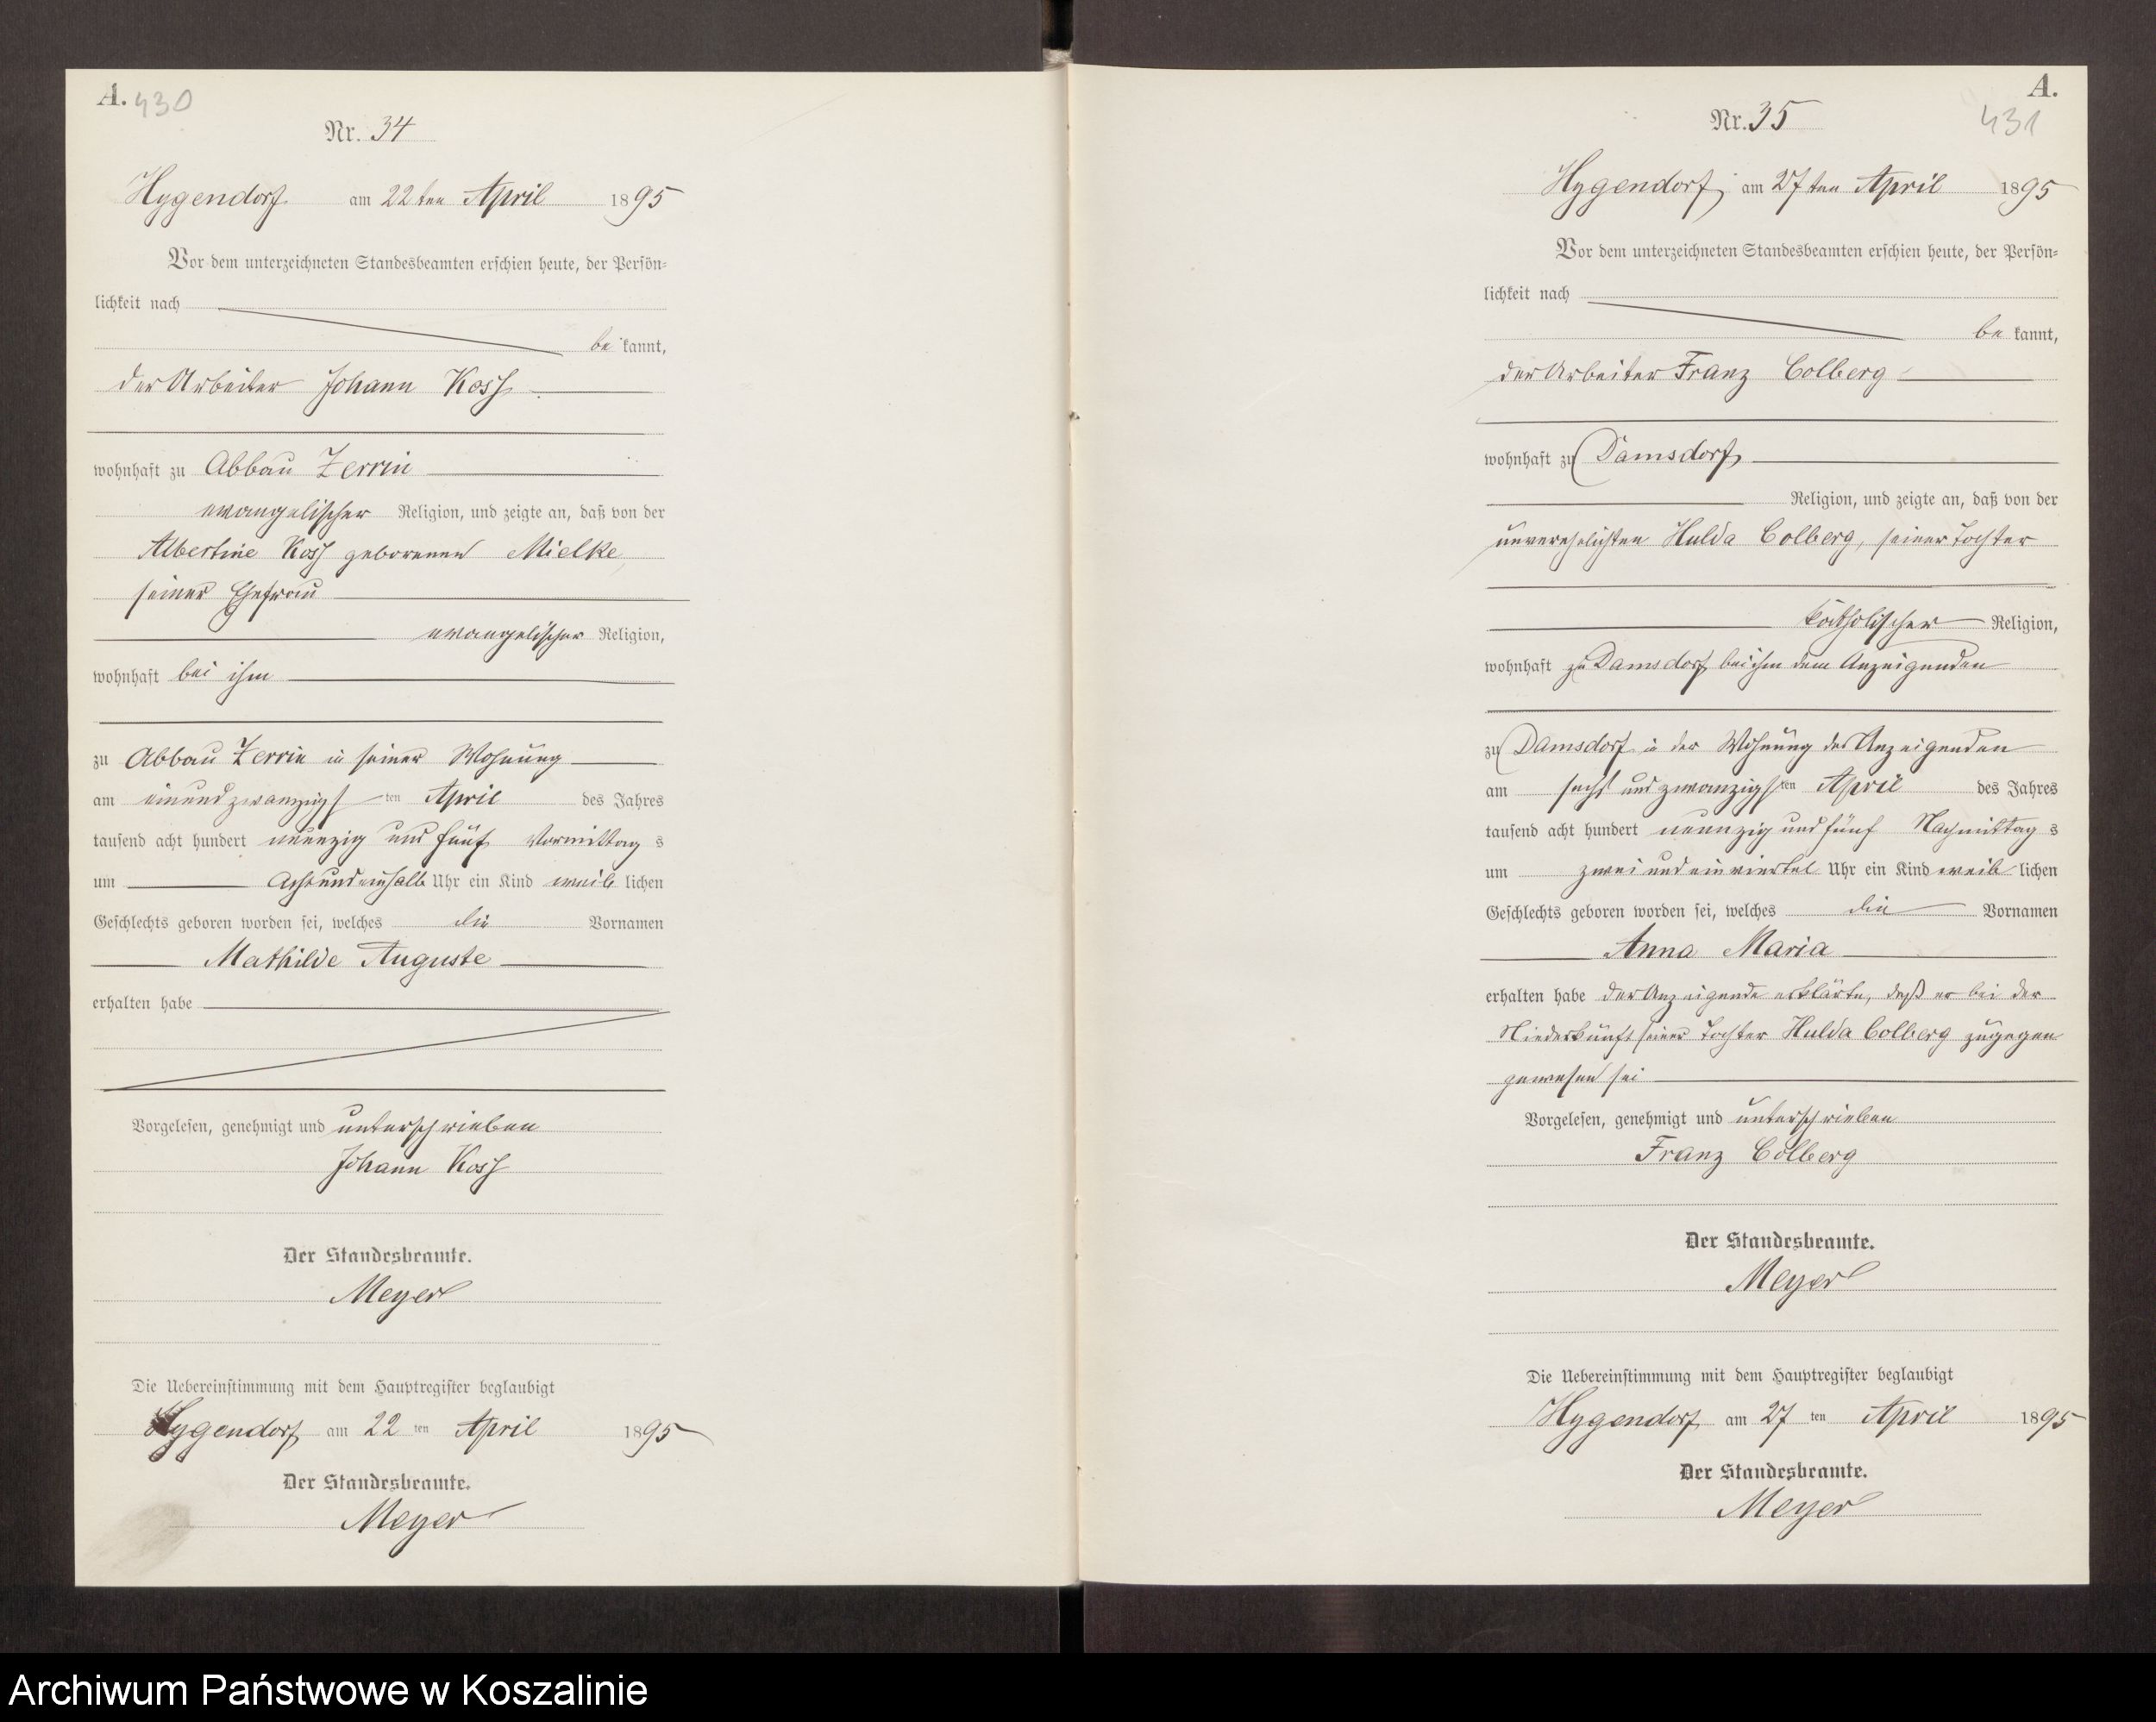 A. 430
Nr. 34
Hygendorf am 22ten April 1895
Vor dem unterzeichneten Standesbeamten erschien heute, der Persön-
lichkeit nach
be kannt,
der Arbeiter Johann Koss
wohnhaft zu Abbau Zerrin
evangelischer Religion, und zeigte an, daß von der
Albertine Koss geborenen Mielke,
seiner Ehefrau
evangelischer Religion,
wohnhaft bei ihm
zu Abbau Zerrin in seiner Wohnung
am einundzwanzigsten April des Jahres
tausend acht hundert neunzig und fünf Vormittags
um Acht und einhalb Uhr ein Kind weiblichen
Geschlechts geboren worden sei, welches die Vornamen
Mathilde Auguste
erhalten habe
Vorgelesen, genehmigt und unterschrieben
Johann Koss
Der Standesbeamte.
Meyer
Die Uebereinstimmung mit dem Hauptregister beglaubigt
Hygendorf am 22ten April 1895
Der Standesbeamte.
Meyer
A.
431
Nr. 35
Hygendorf, am 27ten April 1895
Vor dem unterzeichneten Standesbeamten erschien heute, der Persön-
lichkeit nach
be kannt,
der Arbeiter Franz Colberg
wohnhaft zu Damsdorf
Religion, und zeigte an, daß von der
unverehelichten Hulda Colberg, seiner Tochter
katholischer Religion,
wohnhaft zu Damsdorf bei ihm dem Anzeigenden
zu Damsdorf in der Wohnung des Anzeigenden
am sechs und zwanzigsten April des Jahres
tausend acht hundert neunzig und fünf Nachmittags
um zwei und ein viertel Uhr ein Kind weiblichen
Geschlechts geboren worden sei, welches die Vornamen
Anna Maria
erhalten habe der Anzeigende erklärte, daß er bei der
Niederkunft seiner Tochter Hulda Colberg zugegen
gewesen sei
Vorgelesen, genehmigt und unterschrieben
Franz Colberg
Der Standesbeamte.
Meyer
Die Uebereinstimmung mit dem Hauptregister beglaubigt
Hygendorf am 27ten April 1895
Der Standesbeamte.
Meyer
Archiwum Państwowe w Koszalinie